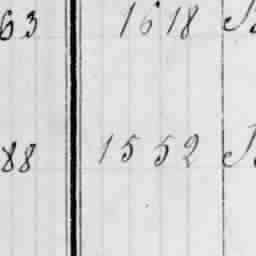 63 1618
88 1552